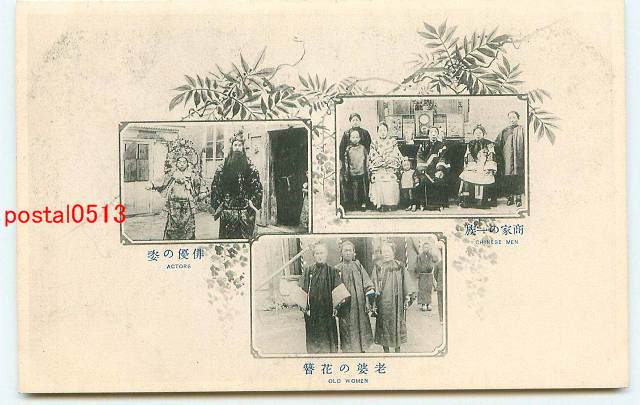 postal0513
俳優の姿
ACTORS
商家の一族
CHINESE MEN
老婆の花簪
OLD WOMEN